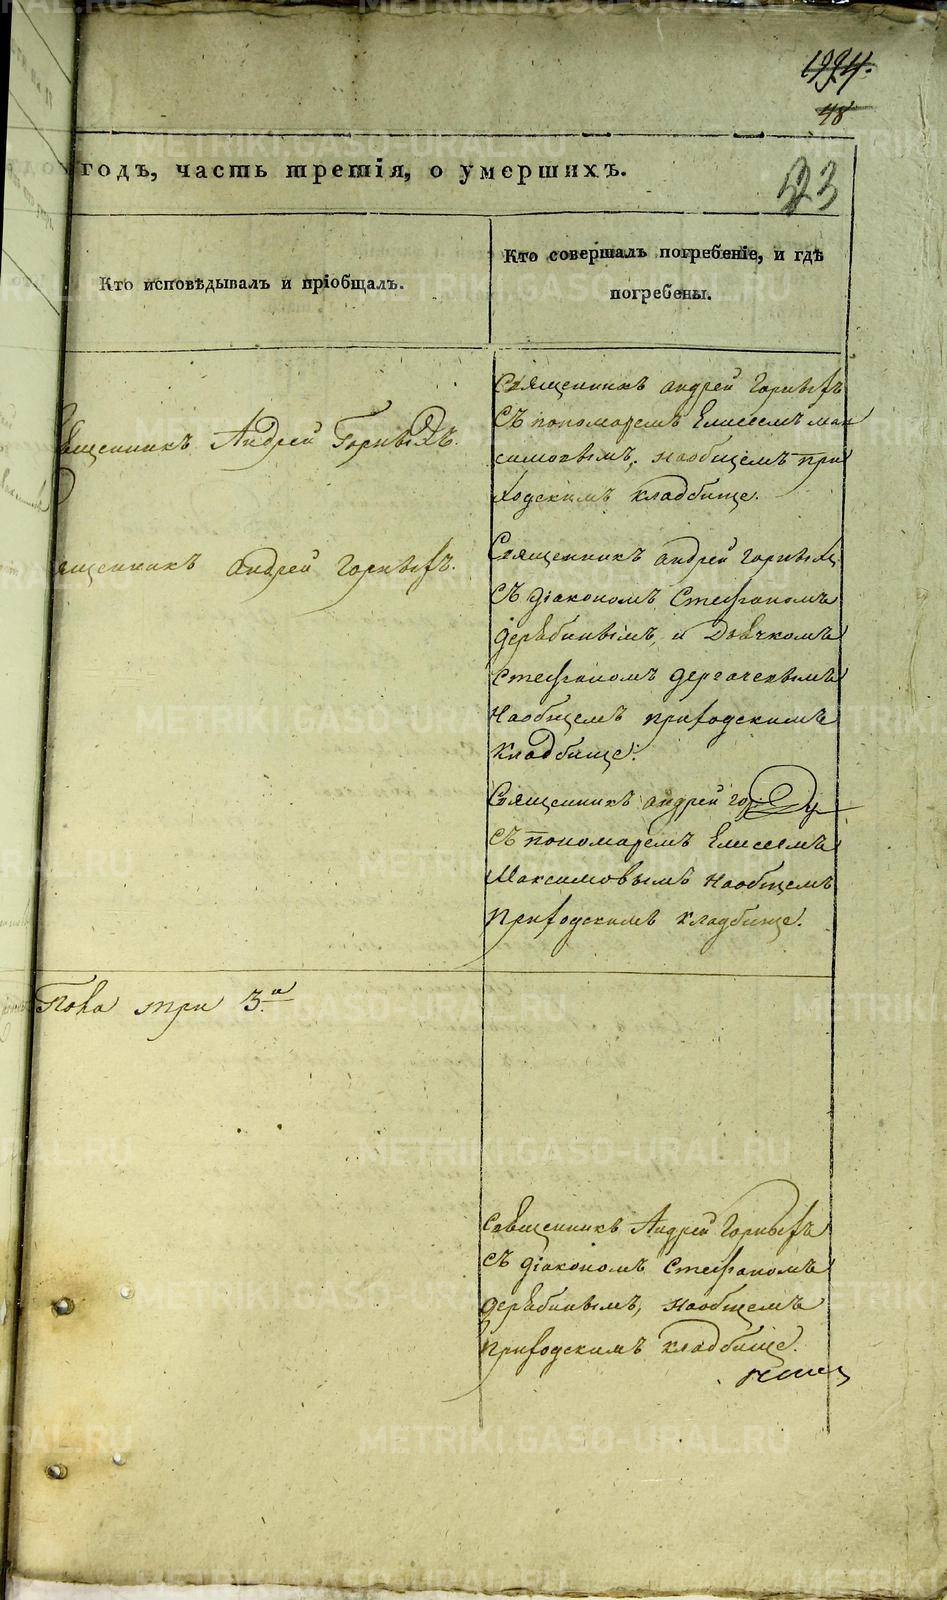 1994.
48
523
годъ, часть третія, о умершихъ.
Кто исповѣдывалъ и пріобщалъ.
Кто совершалъ погребеніе, и гдѣ
погребены.
ященникъ Андрей Горныхъ.
Священникъ андрей Горныхъ
Съ пономаремъ Елисеемъ мак
симовымъ, наобщемъ при
ходскимъ кладбище.
ященникъ андрей горныхъ.
Священникъ андрей горныхъ
Съ діакономъ Стефаномъ
дерябинымъ, и Дьячкомъ
стефаномъ дергачевымъ
Наобщемъ приходскимъ
кладбище.
Священникъ андрей
Съ пономаремъ Елисеемъ
Максимовымъ наобщемъ
приходскимъ кладбище.
Пола три 3.
Священникъ Андрей Горныхъ
Съ діакономъ Стефаномъ
дерябинымъ, наобщемъ
приходскимъ кладбище.
METRIKI.GASO-URAL.RU